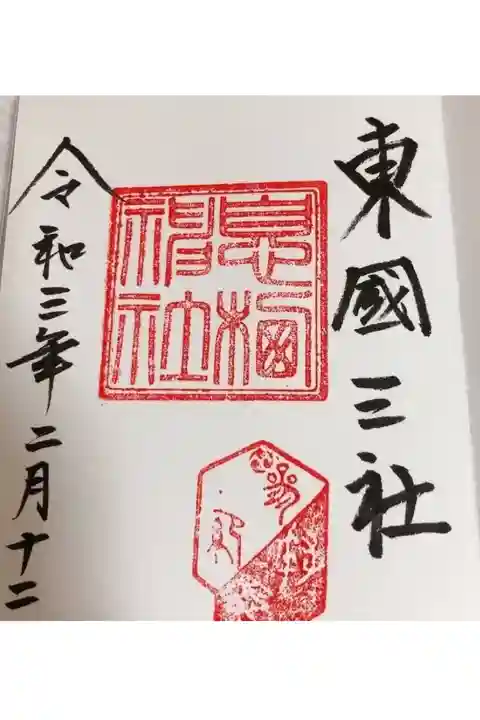 東國三社
息栖
神社
令和三年二月十二